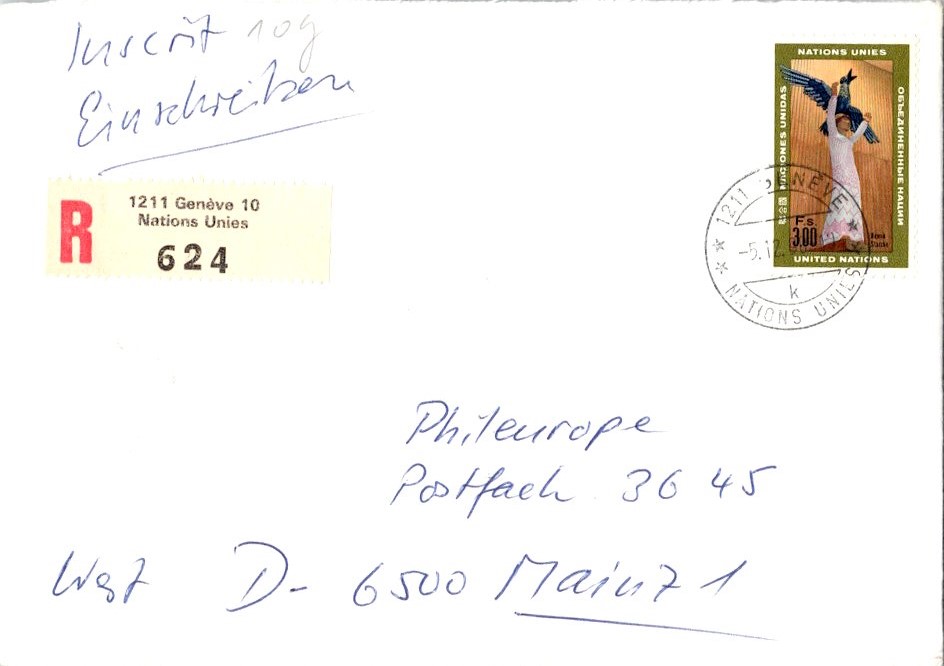 Inscrit 10g
Einschreiben
R
1211 Genève 10
Nations Unies
624
NATIONS UNIES
NACIONES UNIDAS
ОБЪЕДИНЕННЫЕ НАЦИИ
F.s.
3,00
UNITED NATIONS
1211 GENÈVE
-5.12.
k
NATIONS UNIES
Phileurope
Postfach 36 45
West D- 6500 Mainz 1